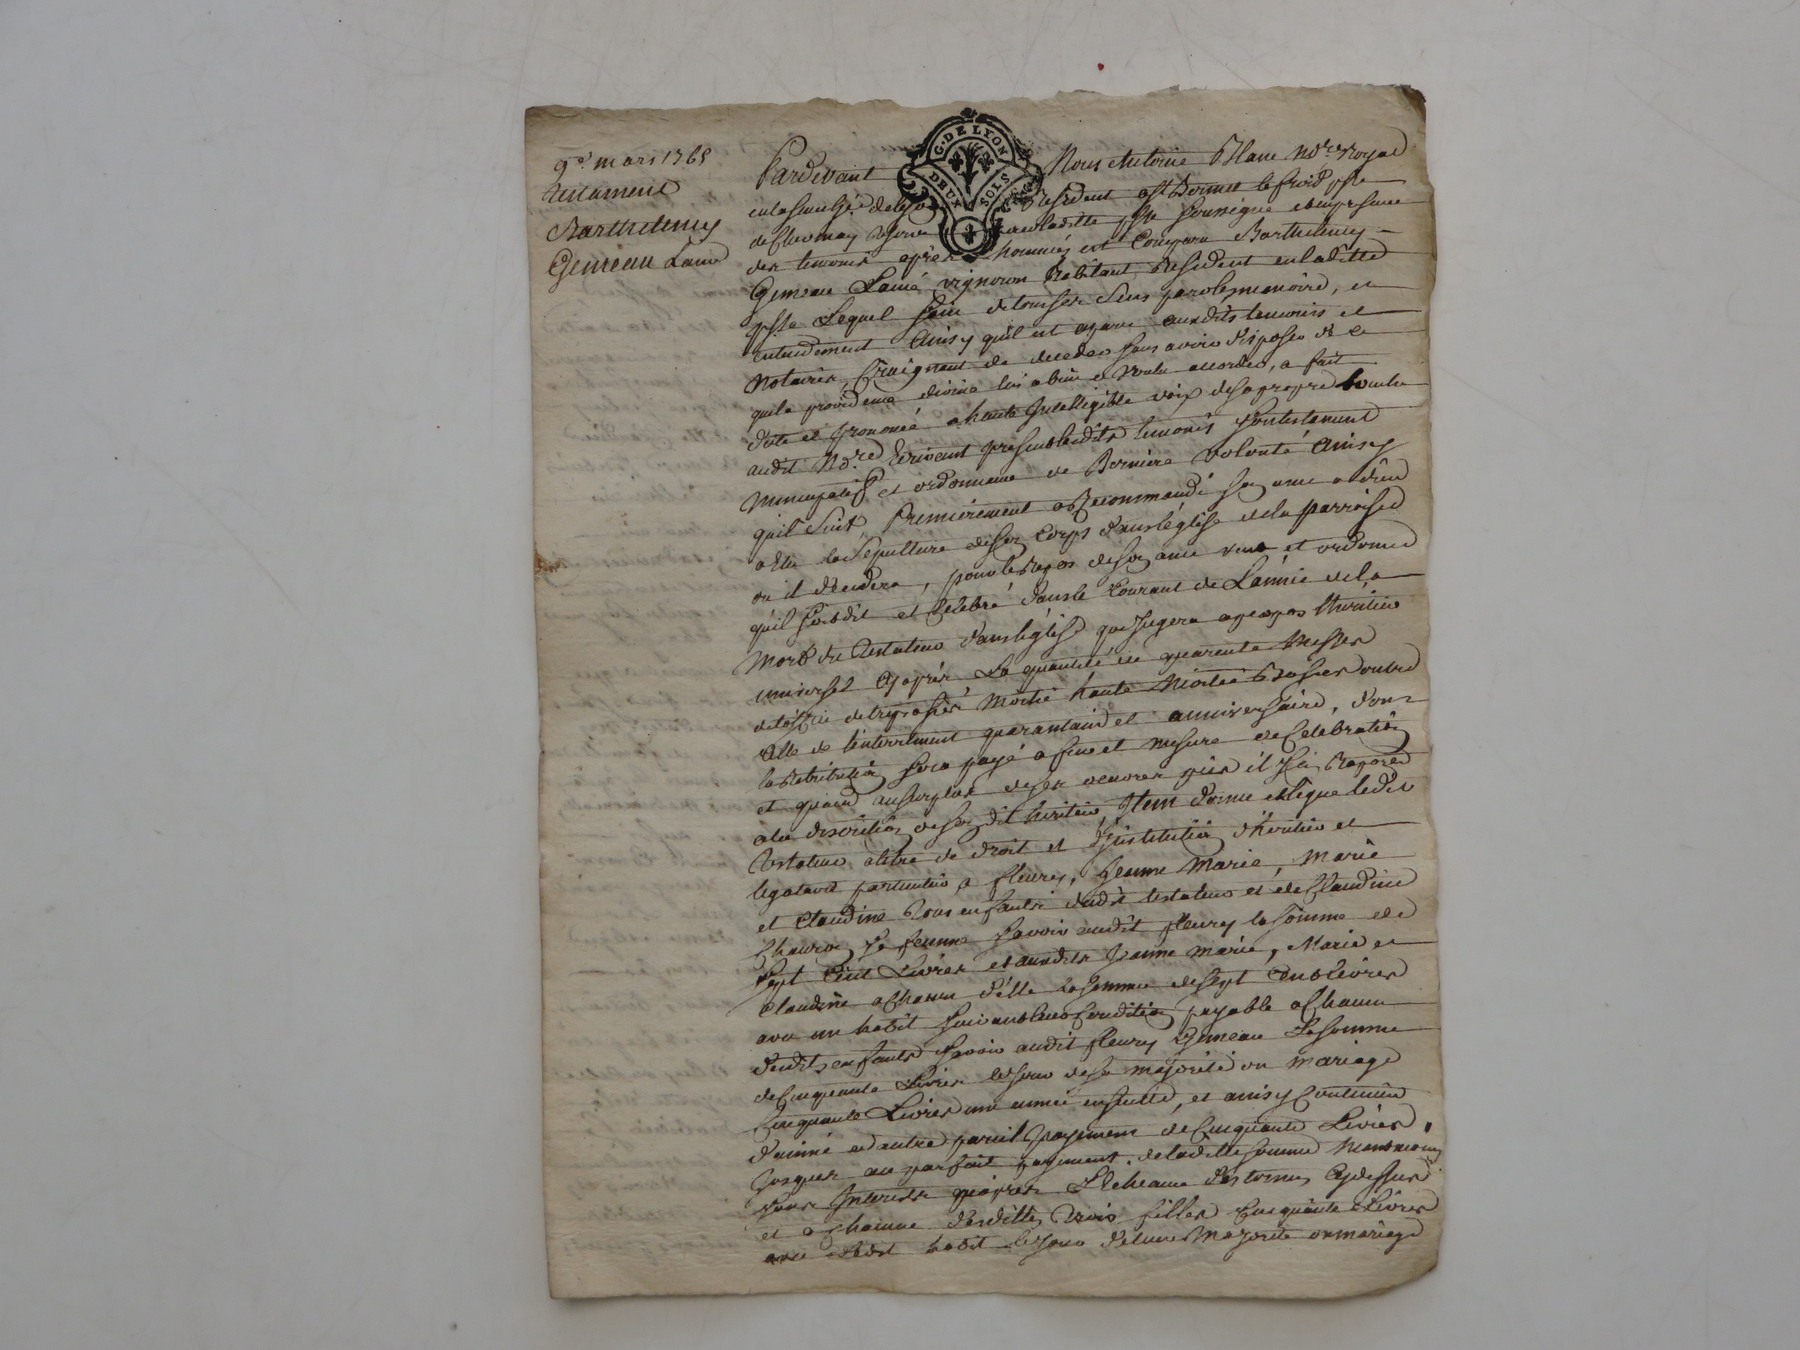 9e mars 1765
testament
Barthelemy
Gimeau Lainé
G. DE LYON
DEUX SOLS
Pardevant Nous Antoine Blanc Nore Royal
en la senechée de Lyon Résident a St Bonnet le froid psse
de Chevinay de laditte psse soussigné et en presence
des temoins après nommés est Comparu Barthelemy
Gimeau Lainé vigneron habitant Résident en laditte
psse Lequel sain de tous ses sens parole memoire, et
entendement Ainsy qu'il est aparu auxdits temoins et
Notaire, Craignant de deceder sans avoir disposé de ce
que la providence divine lui a bien Voulu accorder, a fait
dicté et prononcé a haute Intelligible voix de sa propre bouche
audit Nore Ecrivant presents lesdits temoins son testament
Nuncupatif et ordonnance de Derniere Volonté Ainsy
quil suit, Premierement a Recommandé son ame a dieu
a Elu la sepulture de son Corps dans l'église de la parroisse
ou il decedera, pour le Repos de son ame veut et ordonne
qu'il soit dit et Celebré dans le Courant de Lannée de la
Mort du testateur dans l'église que jugera apropos l'heritier
universel Cy après La quantité de quarente Messes
de trepassés Moitié haute Moitié Basses outre
Celle de l'enterrement quarantaine et anniversaire, dont
la Retribution sera payé a fur et mesure de Celebration
et quand au surplus de ses oeuvres pies il s'en Raporte
a la discretion de son dit heritier, Item donne et legue ledit
testateur a titre de droit et d'Institution d'heritier et
legataire particulier a fleury, Jeanne Marie, Marie
et Claudine tous enfants dudit testateur et de Claudine
sa femme savoir audit fleury la somme de
sept Cent Livres et auxdites Jeanne marie, Marie et
Claudine a Chacune d'elle la somme de sept Cent Livres
avec un habit suivant leur Condition payable a Chacun
desdits enfants savoir audit fleury Gimeau La somme
de Cinquante Livres le jour de sa majorité ou mariage
Cinquante Livres une année ensuitte, et ainsy Continuer
d'année en autre pareil payement de Cinquante Livres
Jusques au parfait payement de laditte somme
sans Interests qu'après L'echeance des termes Cy dessus
et a Chacune desdittes trois filles Cinquante Livres
avec ledit habit le jour de leur Majorité ou mariage